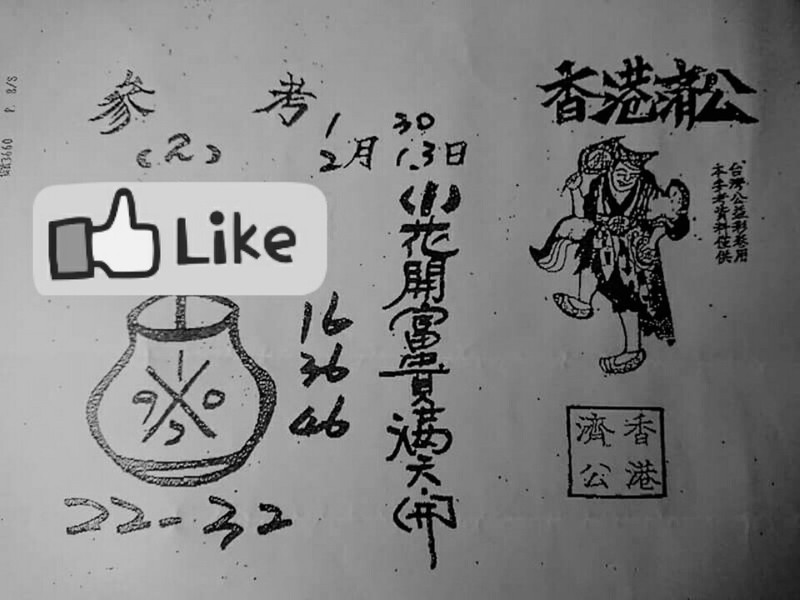 香港濟公
台灣公益彩卷用
本參考資料僅供
香港
濟公
參考
(2)
1 30
2月 1.3日
(小)花開富貴滿天(開)
Like
16
36
46
1
9 0
3
22-32
P. 8/S